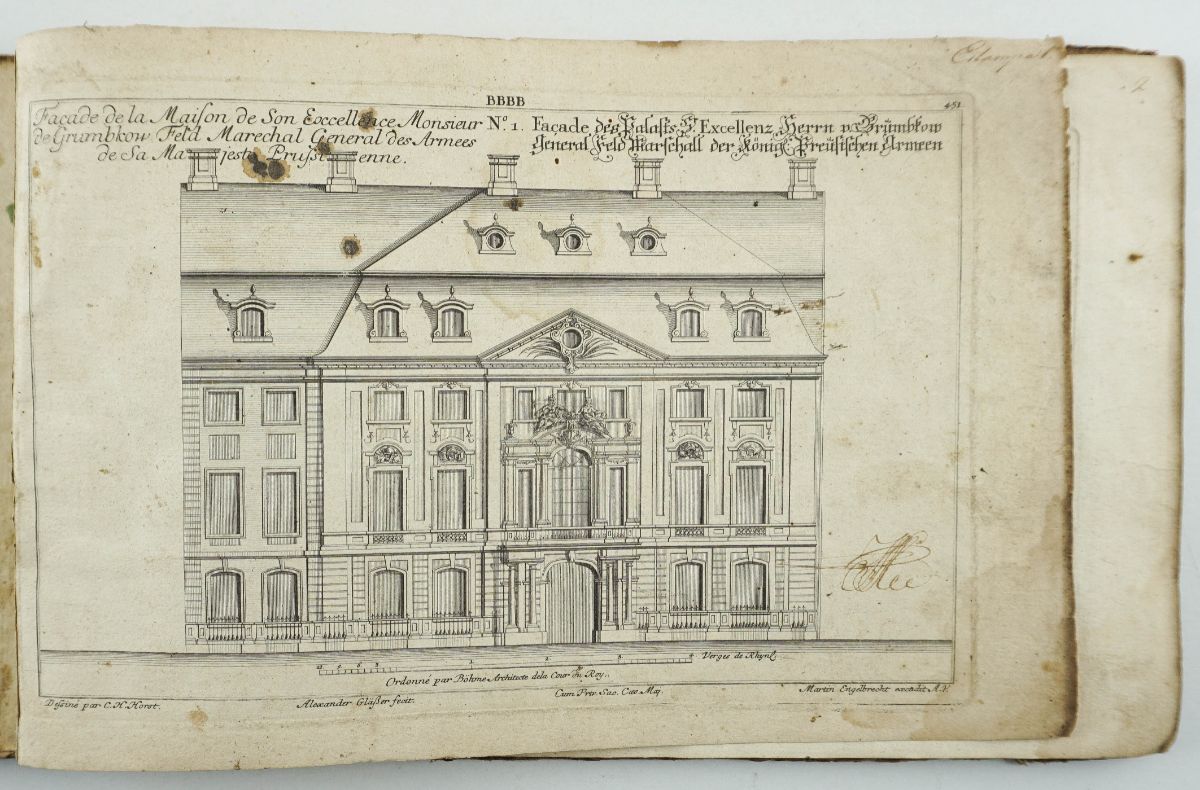 BBBB
451
Façade de la Maiſon de Son Exccellence Monsieur
de Grumbkow Feld Marechal General des Armees
de Sa Majeste Prussienne.
Nº 1.
Façade des Palaſts Sr. Excellenz Herrn v. Grümbkow
General Feld Marschall der Königl. Preüsischen Armeen
12 6 3 1 2 3 4 Verges de Rhynl.
Ordonné par Böhme Architecte de la Cour du Roy.
Cum Priv. Sac. Cæs. Maj.
Deſsiné par C. H. Horst.
Alexander Gläſser fecit.
Martin Engelbrecht excudit A.V.
2